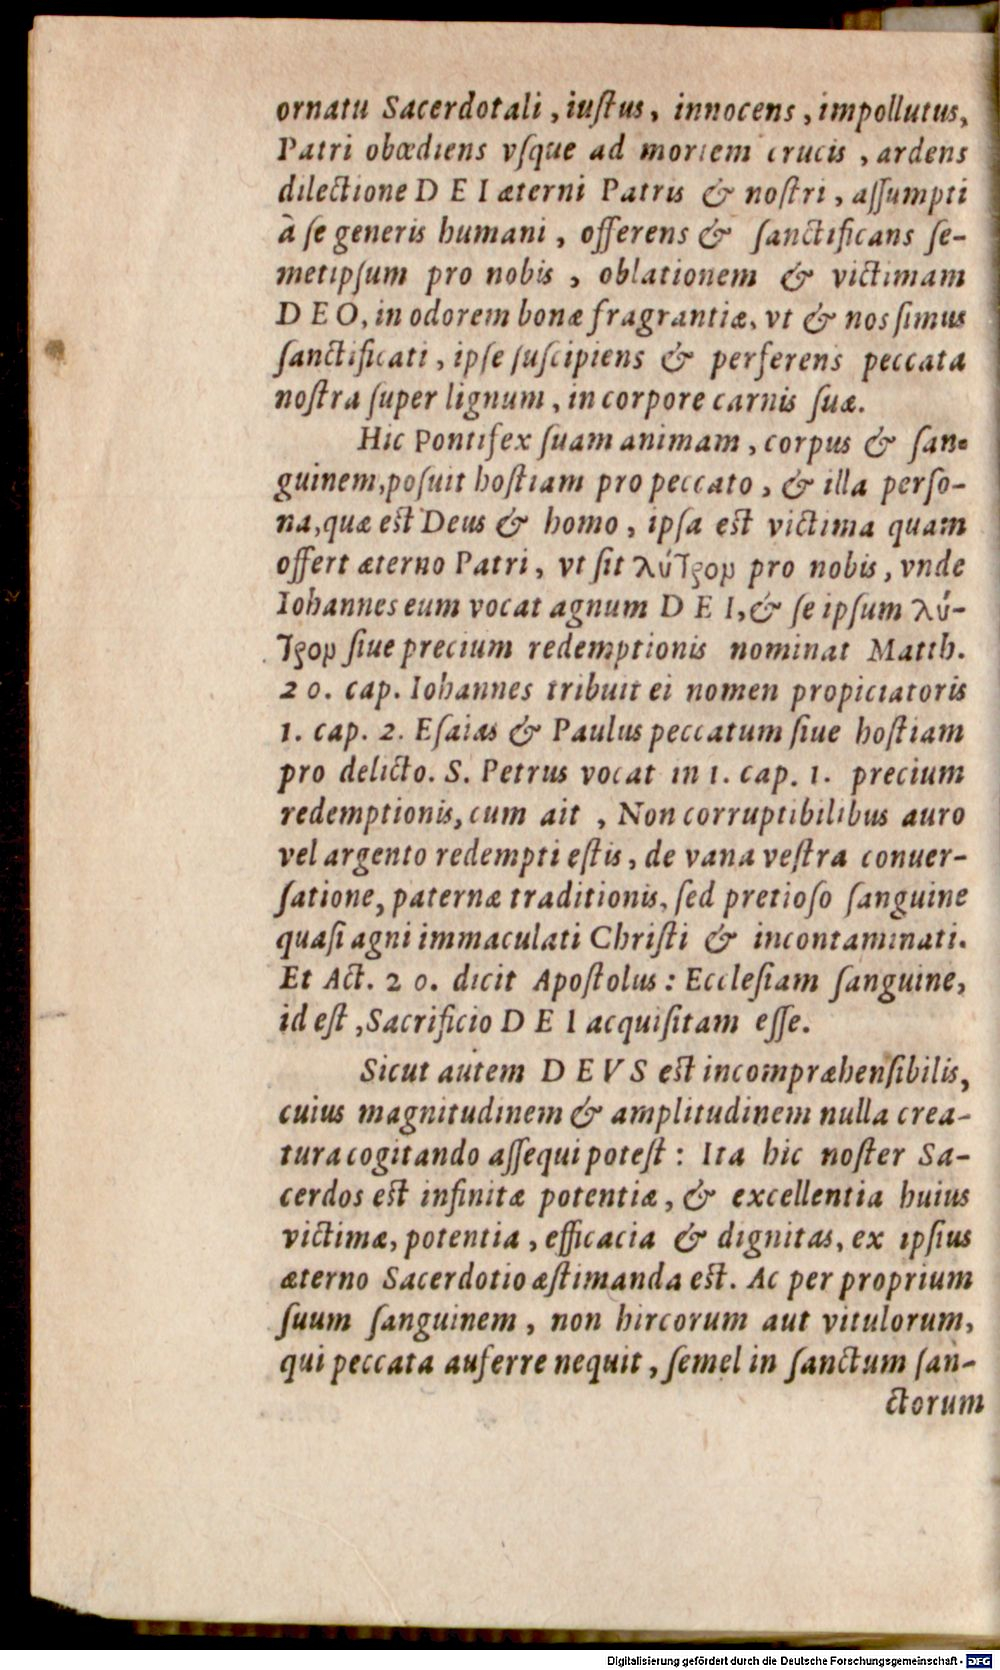 ornatu Sacerdotali, iuſtus, innocens, impollutus,
Patri obœdiens vſque ad mortem crucis, ardens
dilectione DEI æterni Patris & noſtri, aſſumpti
à ſe generis humani, offerens & ſanctificans ſe-
metipſum pro nobis, oblationem & victimam
DEO, in odorem bonæ fragrantiæ, vt & nos ſimus
ſanctificati, ipſe ſuſcipiens & perferens peccata
noſtra ſuper lignum, in corpore carnis ſuæ.
Hic Pontifex ſuam animam, corpus & ſan-
guinem, poſuit hoſtiam pro peccato, & illa perſo-
na, quæ eſt Deus & homo, ipſa eſt victima quam
offert æterno Patri, vt ſit λύτρον pro nobis, vnde
Iohannes eum vocat agnum DEI, & ſe ipſum λύ-
τρον ſiue precium redemptionis nominat Matth.
20. cap. Iohannes tribuit ei nomen propiciatoris
1. cap. 2. Eſaias & Paulus peccatum ſiue hoſtiam
pro delicto. S. Petrus vocat in 1. cap. 1. precium
redemptionis, cum ait, Non corruptibilibus auro
vel argento redempti eſtis, de vana veſtra conuer-
ſatione, paternæ traditionis, ſed pretioſo ſanguine
quaſi agni immaculati Chriſti & incontaminati.
Et Act. 20. dicit Apoſtolus: Eccleſiam ſanguine,
id eſt, Sacrificio DEI acquiſitam eſſe.
Sicut autem DEVS eſt incompræhenſibilis,
cuius magnitudinem & amplitudinem nulla crea-
tura cogitando aſſequi poteſt: Ita hic noſter Sa-
cerdos eſt infinitæ potentiæ, & excellentia huius
victimæ, potentia, efficacia & dignitas, ex ipſius
æterno Sacerdotio æſtimanda eſt. Ac per proprium
ſuum ſanguinem, non hircorum aut vitulorum,
qui peccata auferre nequit, ſemel in ſanctum ſan-
ctorum
Digitalisierung gefördert durch die Deutsche Forschungsgemeinschaft - DFG